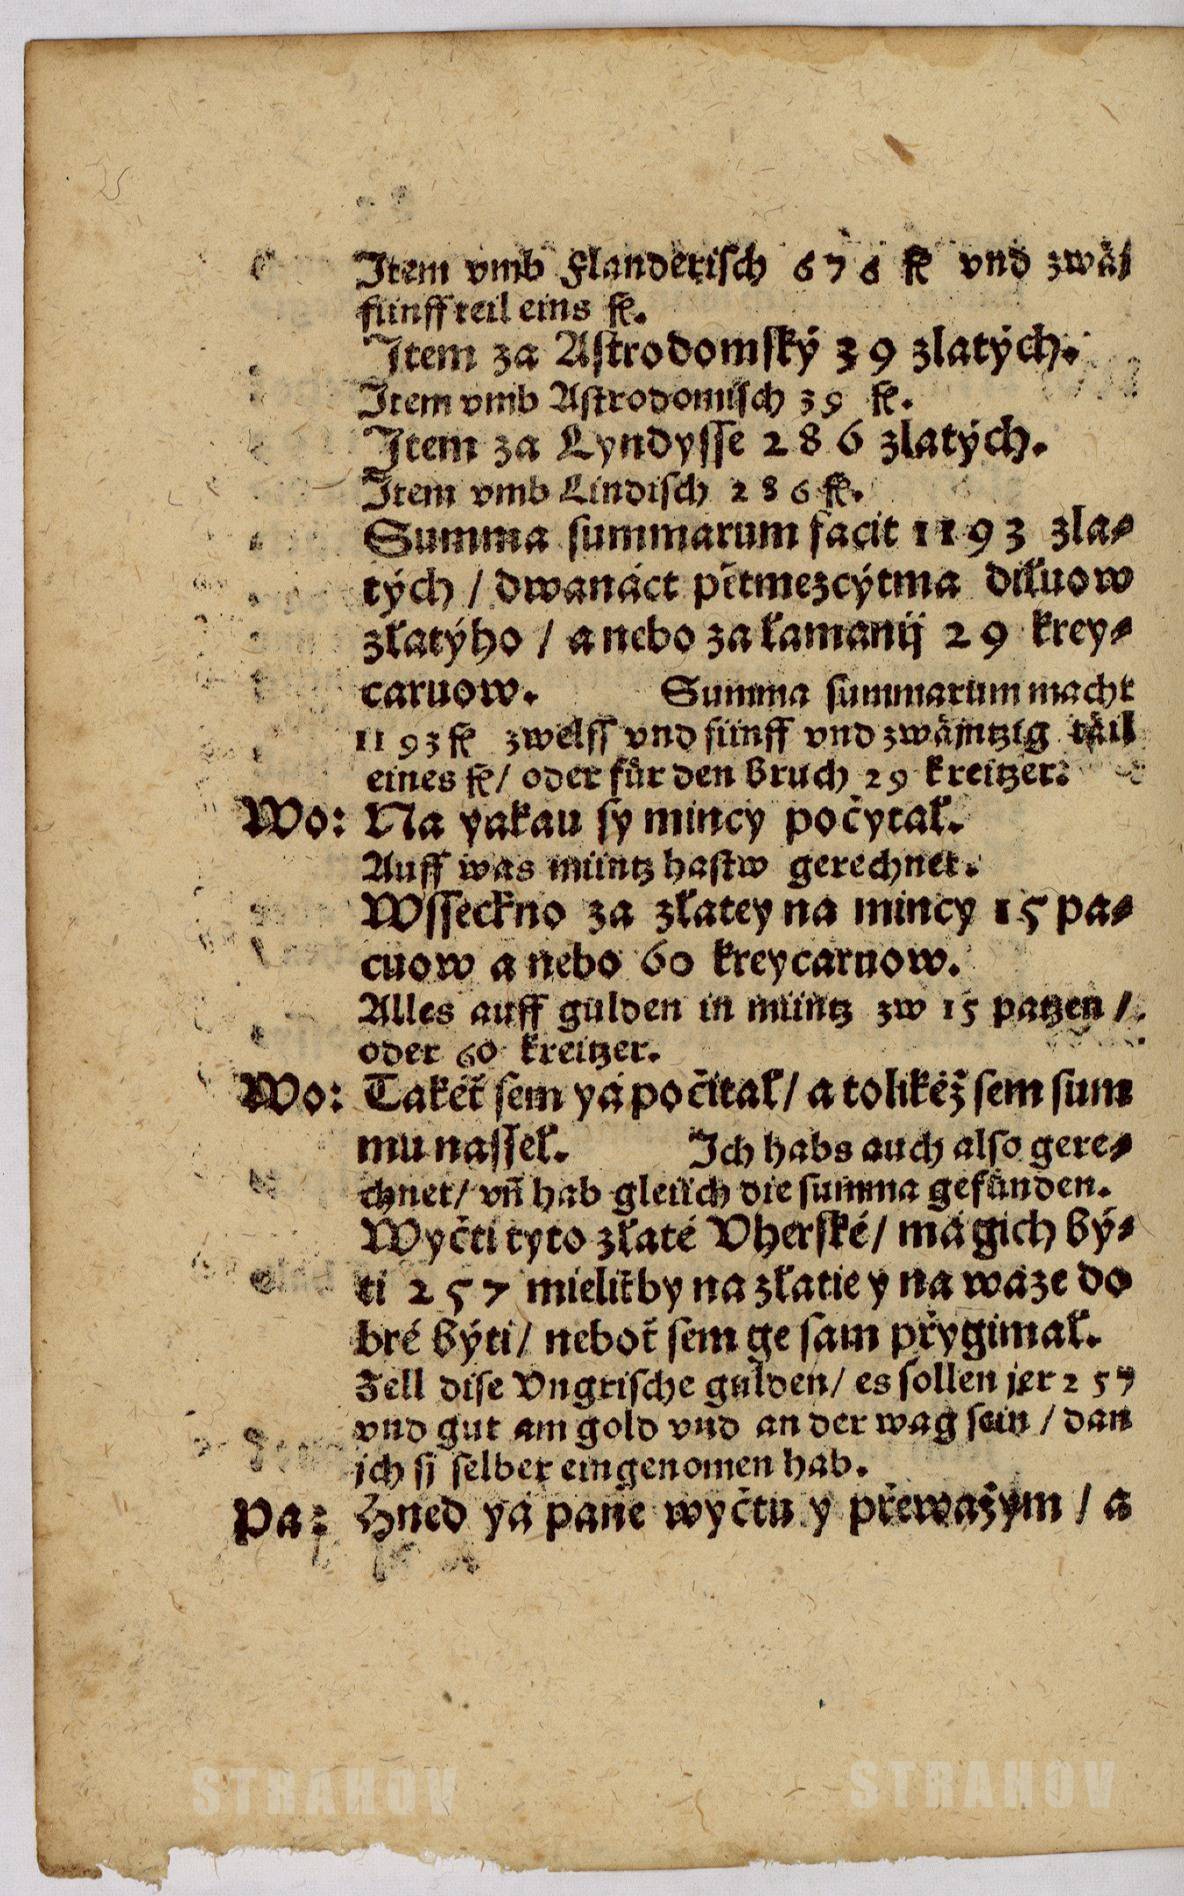 Item vmb Flanderisch 676 fl vnd zwäi
fünff teil eins fl.
Item za Astrodomský 39 zlatých.
Item vmb Astrodomisch 39 fl.
Item za Lyndysse 286 zlatých.
Item vmb Lindisch 286 fl.
Summa summarum facit 1193 zla⸗
tých / dwanáct pětmezcýtma diluow
zlatýho / a nebo za lamanij 29 krey⸗
caruow. Summa summarum macht
1193 fl zwelff vnd fünff vnd zwäintzig täil
eines fl / oder für den bruch 29 kreitzer:
Wo: Na yakau sy mincy počytal.
Auff was müntz hastw gerechnet.
Wsseckno za zlatey na mincy 15 pa⸗
cuow a nebo 60 kreycaruow.
Alles auff gulden in müntz zw 15 patzen /
oder 60 kreitzer.
Wo: Takét sem yá počítal / a tolikéž sem sum
mu nassel. Ich habs auch also gere⸗
chnet / vñ hab gleiich die summa gefunden.
Wyčti tyto zlaté Vherské / má gich bý⸗
ti 257 mielitby na zlatie y na wáze do
bré býti / neboť sem ge sam přygimal.
Zell dise Vngrische gulden / es sollen jer 257
vnd gut am gold vnd an der wag sein / dan
ich si selber eingenomen hab.
Pa: Hned yá pane wyčtu y přewážym / a
STRAHOV STRAHOV